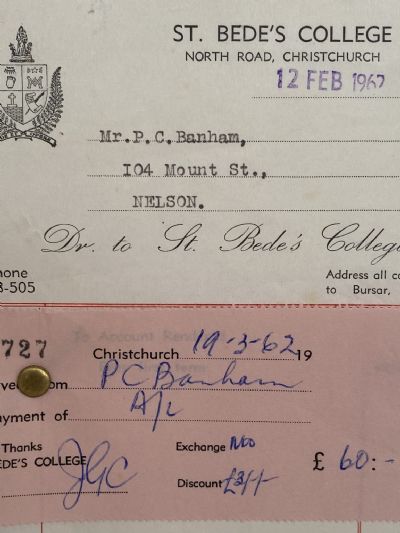 ST. BEDE'S COLLEGE
NORTH ROAD, CHRISTCHURCH
12 FEB 1962
Mr.P.C.Banham,
104 Mount St.,
NELSON.
Dr. to St. Bede's College
hone
8-505
Address all co
to Bursar,
To Account Rend
727
Christchurch 19-3-62 19
ve om P C Banham
ayment of A/c
Thanks
EDE'S COLLEGE
JGC
Exchange
Discount £3/-/-
£ 60:-